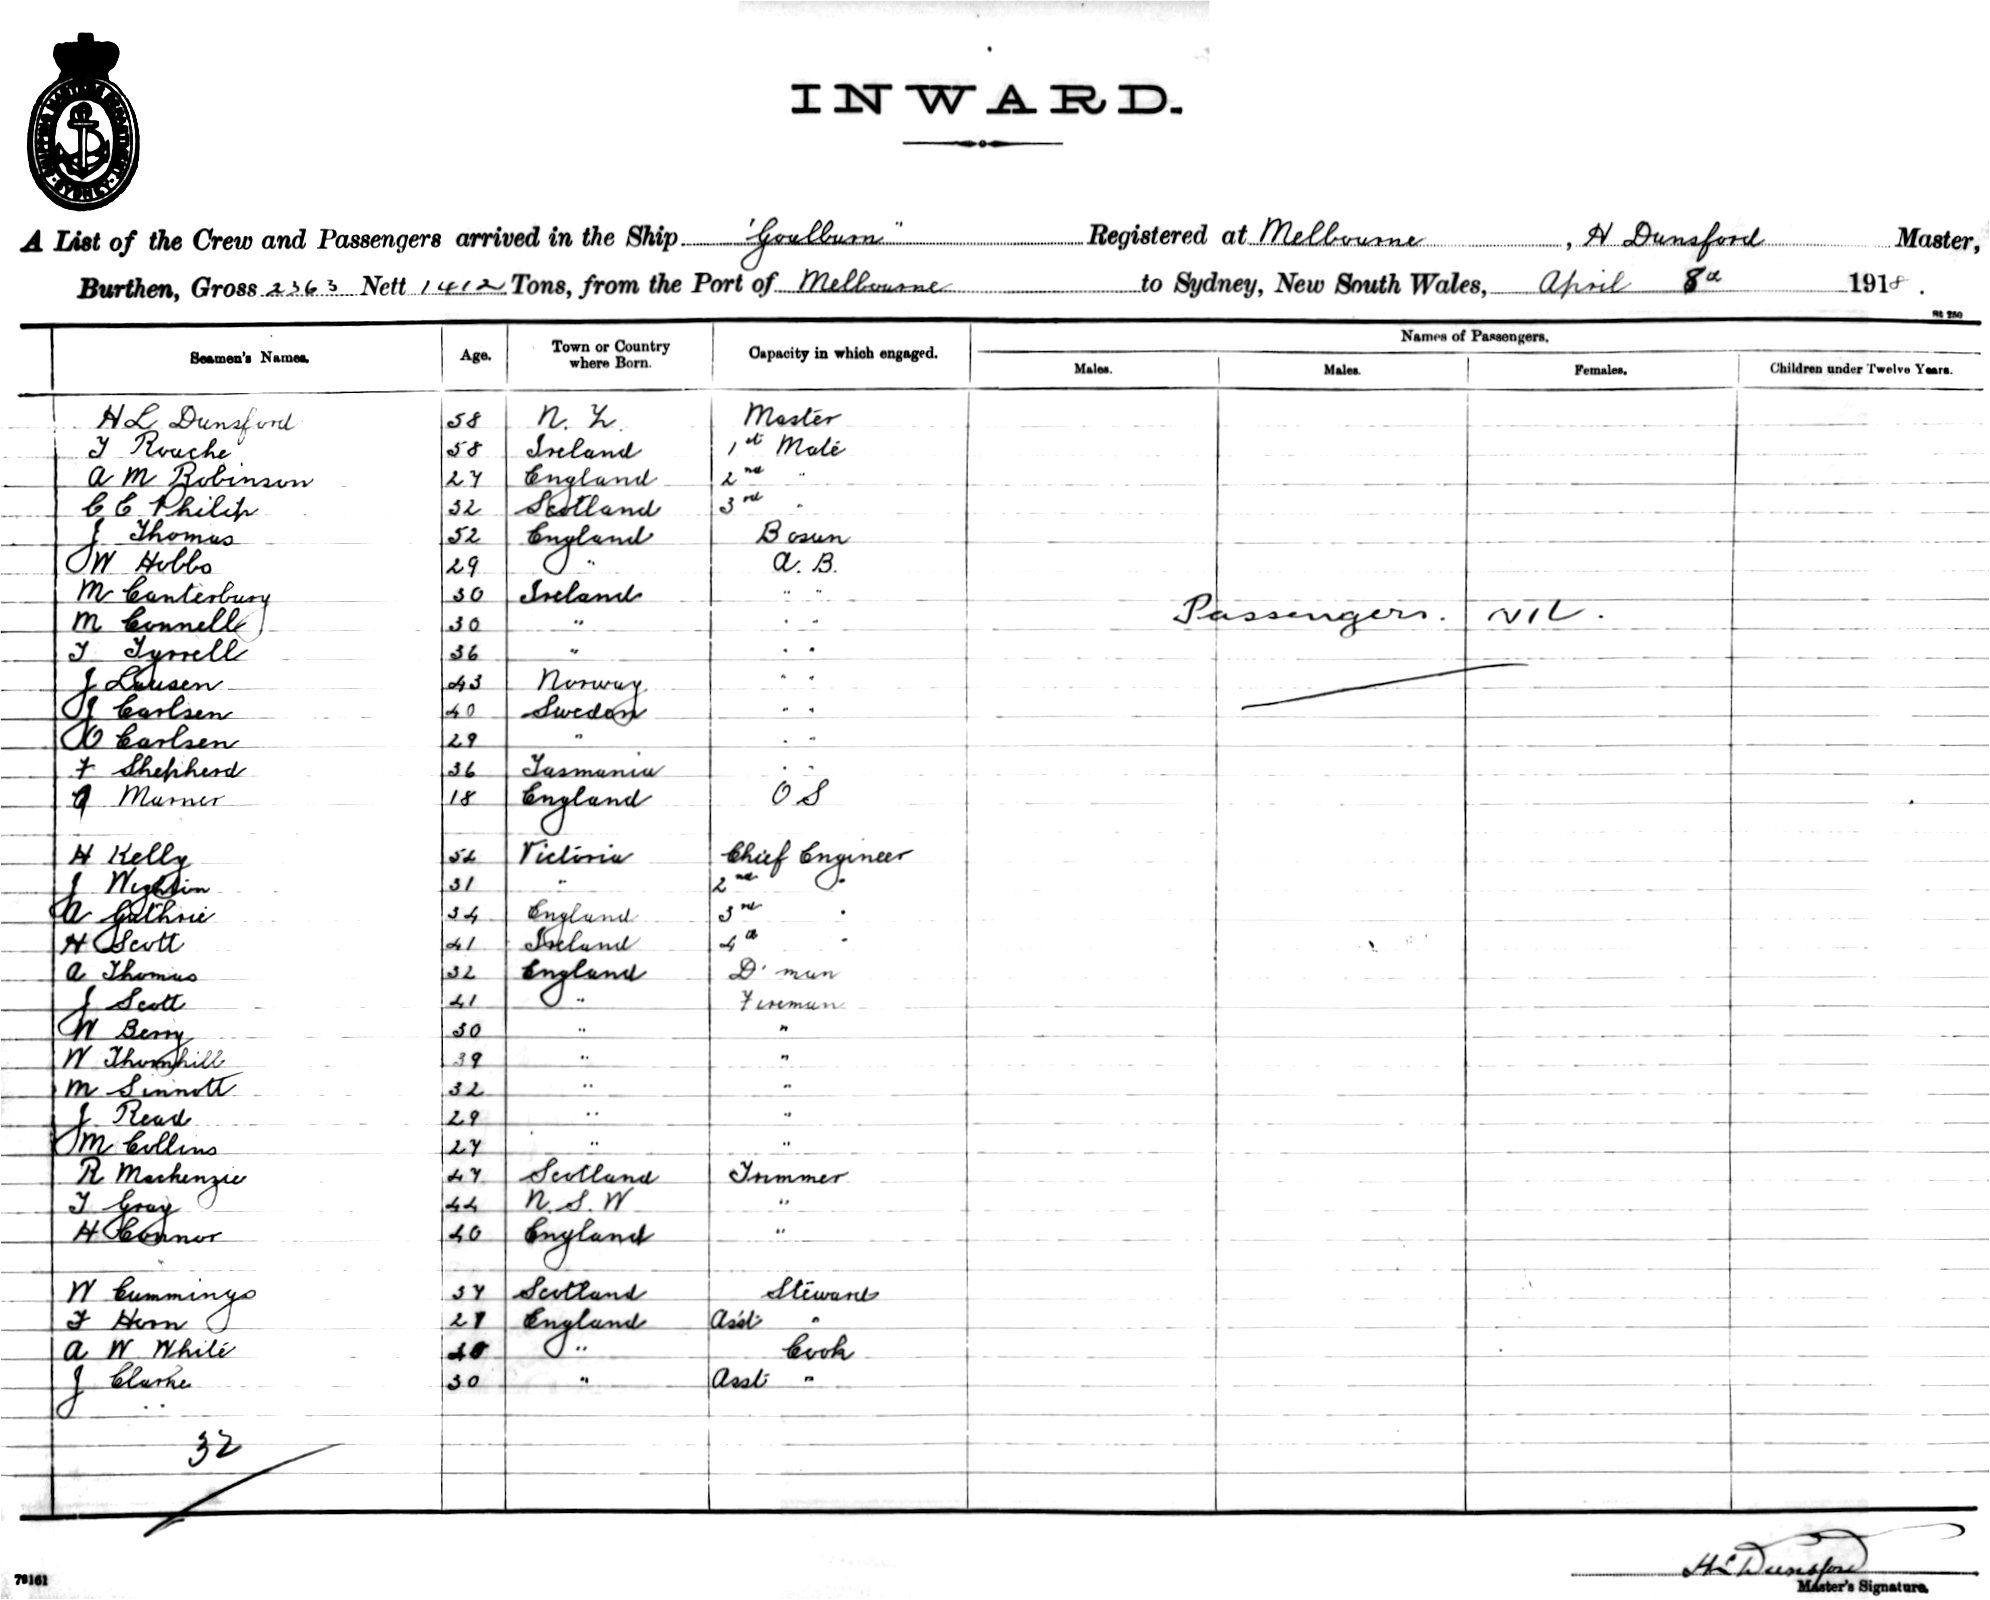 INWARD.
SYDNEY
A List of the Crew and Passengers arrived in the Ship "Goulburn" Registered at Melbourne, H Dunsford Master,
Burthen, Gross 2363 Nett 1412 Tons, from the Port of Melbourne to Sydney, New South Wales, April 8th 1918.
St 250
Seamen's Names. Age. Town or Country where Born. Capacity in which engaged. Names of Passengers.
Males. Males. Females. Children under Twelve Years.
H L Dunsford 58 N. Z. Master
T Rouche 58 Ireland 1st Mate
A M Robinson 27 England 2nd "
C E Philip 32 Scotland 3rd "
J Thomas 52 England Bosun
W Hobbs 29 " A. B.
M Canterbury 30 Ireland " "
M Connell 30 " " "
Passengers. NIL.
T Tyrrell 36 " " "
J Lausen 43 Norway " "
J Carlsen 40 Sweden " "
O Carlsen 29 " " "
F Shepherd 36 Tasmania " "
Marner 18 England O S
H Kelly 52 Victoria Chief Engineer
J 31 " 2nd "
A Guthrie 34 England 3rd "
H Scott 41 Ireland 4th "
A Thomas 32 England D'man
J Scott 41 " Fireman
W Berry 30 " "
W Thornhill 39 " "
M Sinnott 32 " "
J Read 29 " "
M Collins 27 " "
R Mackenzie 47 Scotland Trimmer
T Gray 44 N. S. W "
H Connor 40 England "
W Cummings 37 Scotland Steward
F Horn England Asst "
A W White " Cook
J Clarke 30 " Asst "
32
H L Dunsford
Master's Signature.
79161